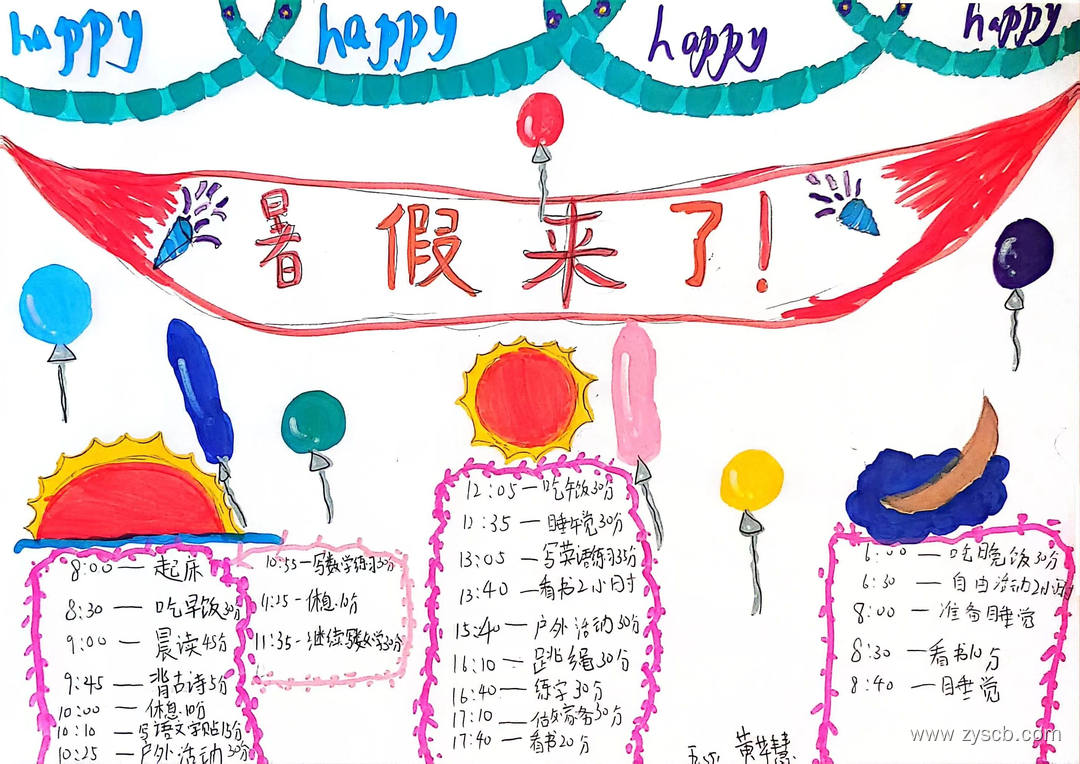 happy happy happy happy
暑假来了!
8:00 — 起床
8:30 — 吃早饭30分
9:00 — 晨读45分
9:45 — 背古诗5分
10:00 — 休息10分
10:10 — 写语文字贴15分
10:25 — 户外活动30分
10:55 — 写数学练习30分
11:25 - 休息10分
11:35 - 继续写数学30分
12:05 — 吃午饭30分
12:35 — 睡午觉30分
13:05 — 写英语练习35分
13:40 — 看书2小时
15:40 — 户外活动30分
16:10 — 跳绳30分
16:40 — 练字30分
17:10 — 30分
17:40 — 看书20分
6:00 — 吃晚饭30分
6:30 — 自由活动2小时
8:00 — 准备睡觉
8:30 — 看书10分
8:40 — 睡觉
黄华慧
www.zyscb.com